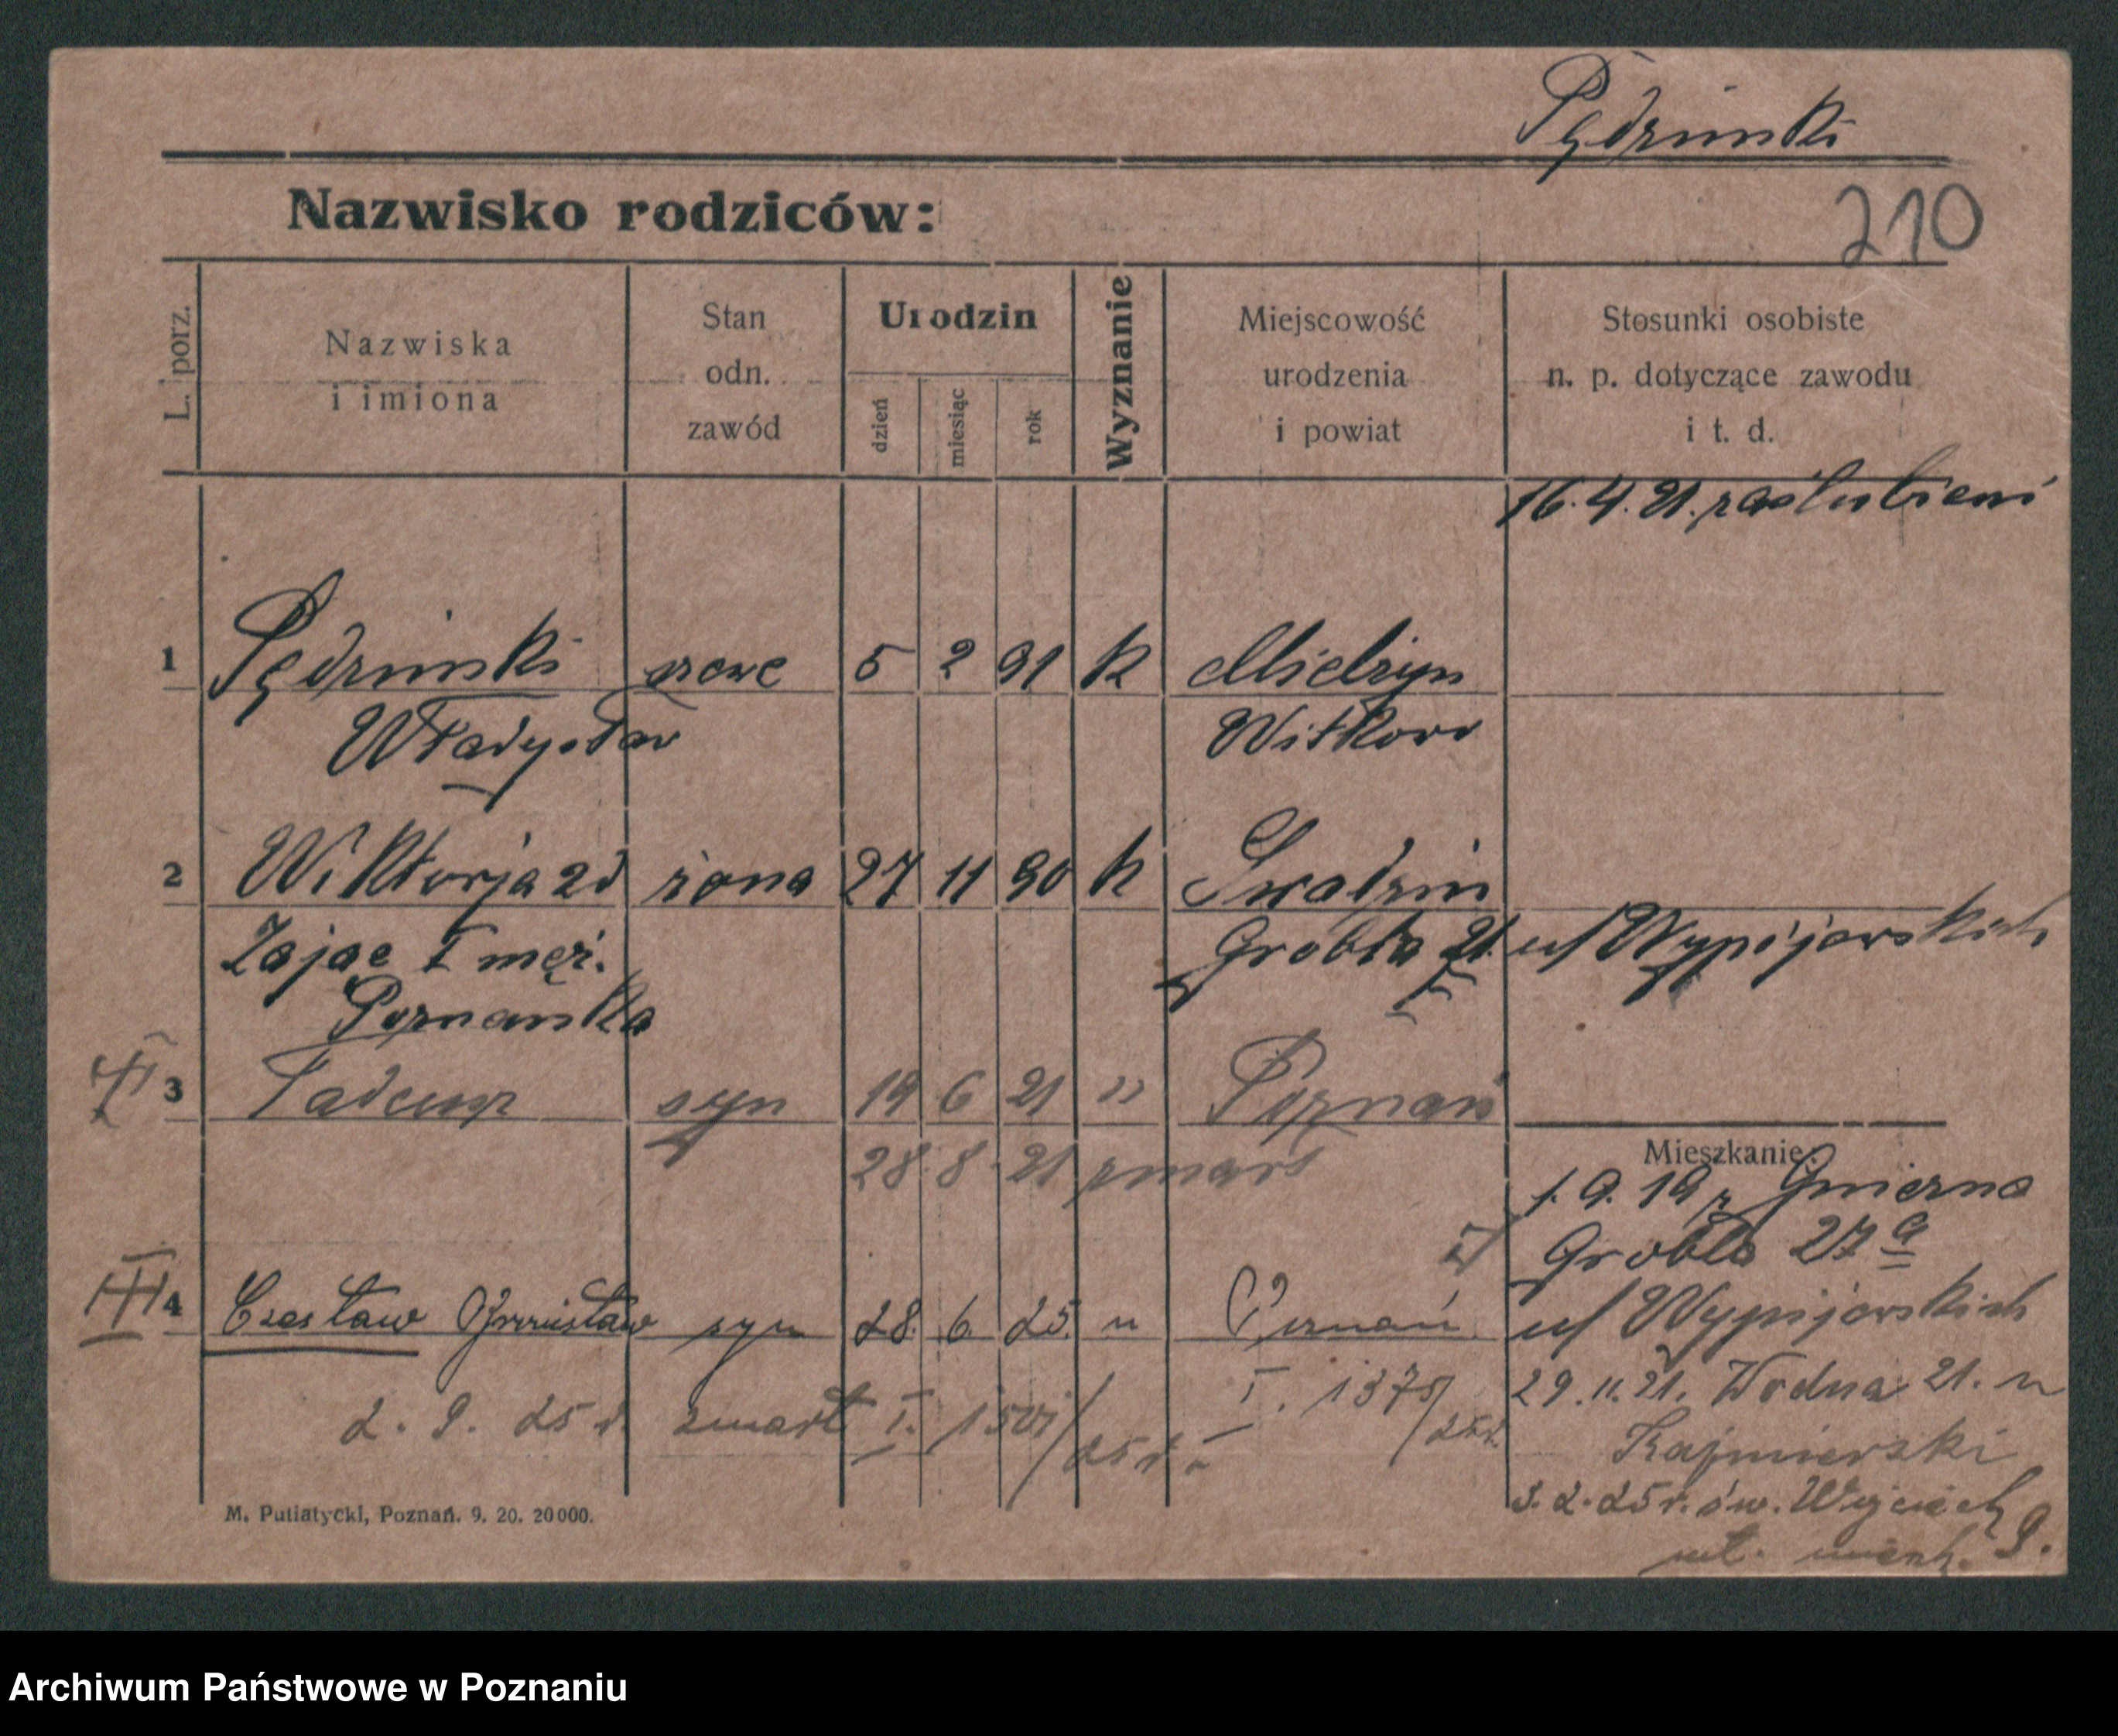 Pędziński
Nazwisko rodziców:
210
L. porz.
Nazwiska
i imiona
Stan
odn.
zawód
Urodzin
dzień
miesiąc
rok
Wyznanie
Miejscowość
urodzenia
i powiat
Stosunki osobiste
n. p. dotyczące zawodu
i t. d.
16.4.21. zaślubieni
1 Pędziński szewc 5 2 91 k Mielżyn
Władysław Witkowo
2 Wiktorja zd żona 27 11 90 k Swadzim
Zając I męż. Grobla 21. u/ Wypijewskich
Poznańska
3 Tadeusz syn 19 6 21 " Poznań
28. 8. 21 zmarł
Mieszkanie:
1.9.19 z Gniezna
Grobla 27 a
u/ Wypijewskich
III 4 Czesław Bronisław syn 28. 6. 25. " Poznań
I. 1375/25r.
29.11.21. Wodna 21. u
2. 9. 25 r. zmarł I. 1501/25 r.
Kaźmierski
3.2.25 r. św. Wojciech 9.
M. Putiatycki, Poznań. 9. 20. 20000.
Archiwum Państwowe w Poznaniu